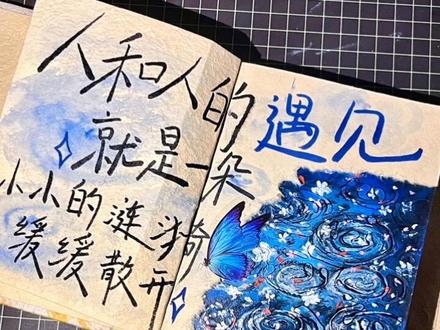 人和人的遇见
就是一朵
小小的涟漪
缓缓散开